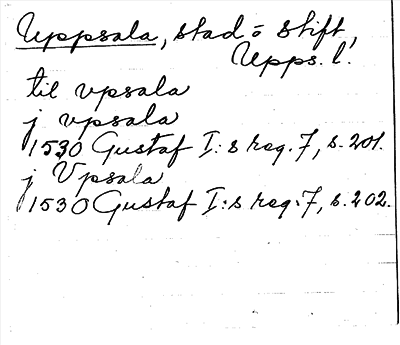 Uppsala, stad o stift,
Upps. l.
til vpsala
j vpsala
1530 Gustaf I:s reg. 7, s. 201.
j Vpsala
1530 Gustaf I:s reg. 7, s. 202.